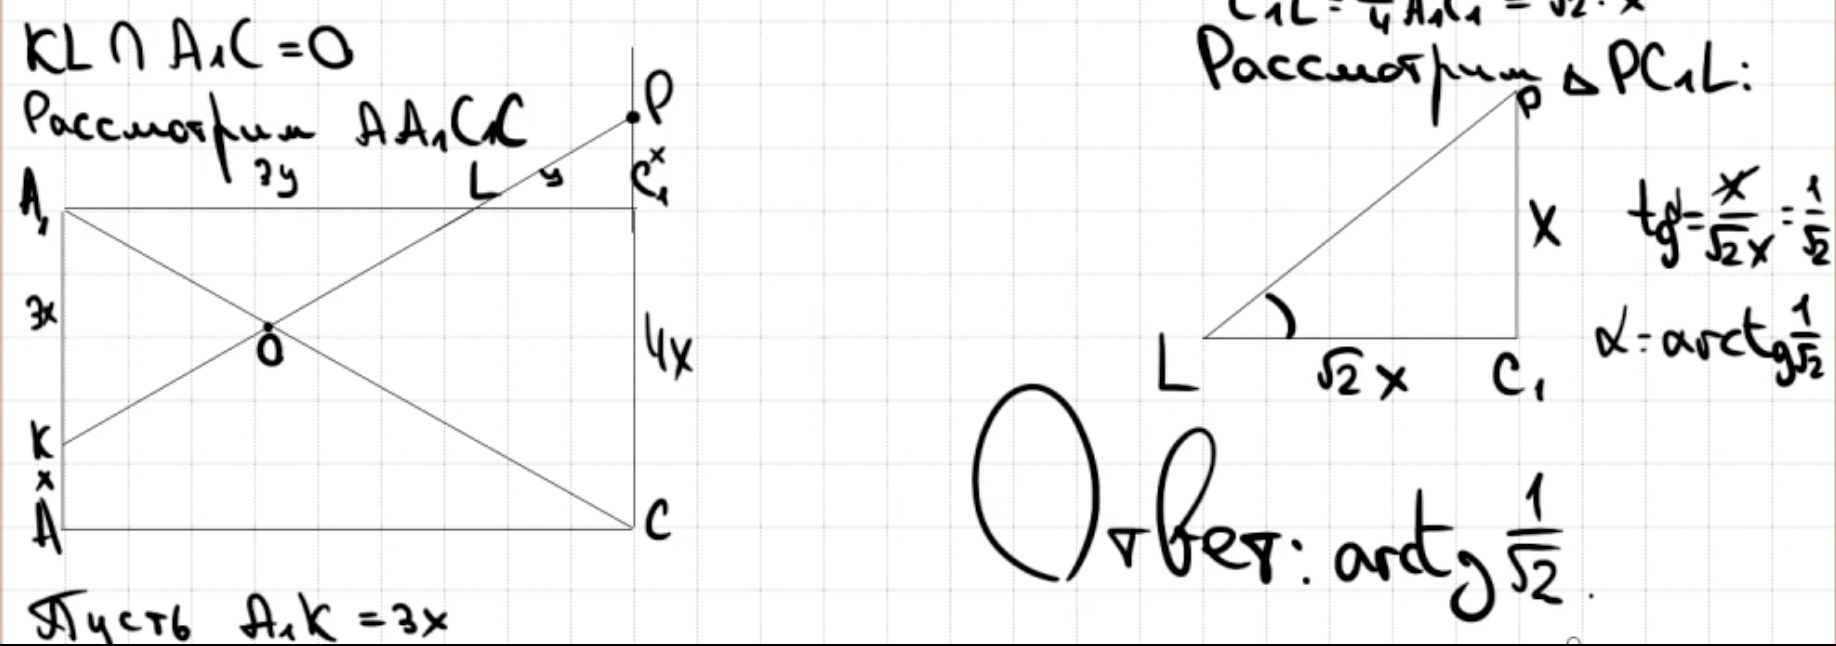 KL ∩ A₁C = O
Рассмотрим AA₁C₁C
3y
L
y
P
x
C₁
A₁
3x
O
4x
K
x
A
C
Пусть A₁K = 3x
C₁L = 1/4 A₁C₁ = √2·x
Рассмотрим △ PC₁L:
P
x
tg = x/√2x = 1/√2
α = arctg 1/√2
L
√2 x
C₁
Ответ: arctg 1/√2.